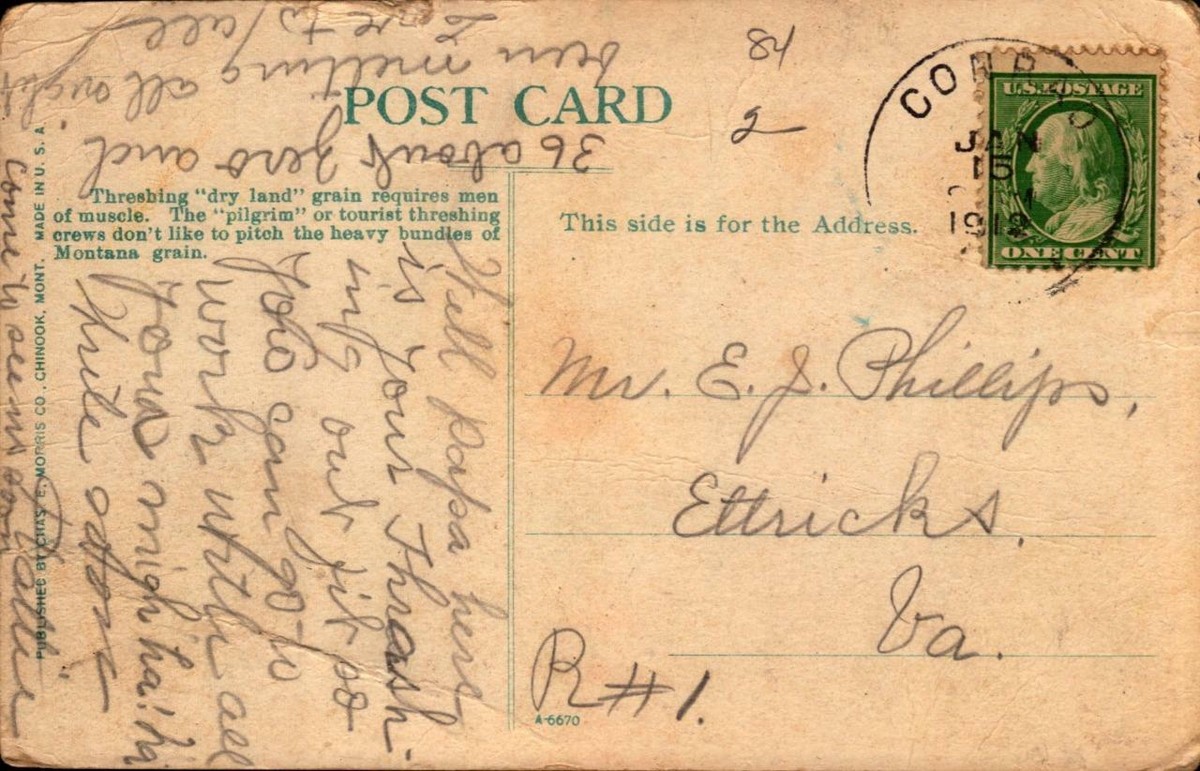 84
2
POST CARD
Threshing "dry land" grain requires men
of muscle. The "pilgrim" or tourist threshing
crews don't like to pitch the heavy bundles of
Montana grain.
This side is for the Address.
CONRAD
JAN
15
M
1912
U.S. POSTAGE
ONE CENT
Mr. E. J. Phillips,
Ettricks,
Va.
R#1.
A-6670
PUBLISHED BY CHAS. E. MORRIS CO., CHINOOK, MONT. MADE IN U. S. A
Well Papa here
is your Thrash-
ing out fit so
you can go to
work with all
your
write
come to see us
36 about zero and
been melting all right
Love to all